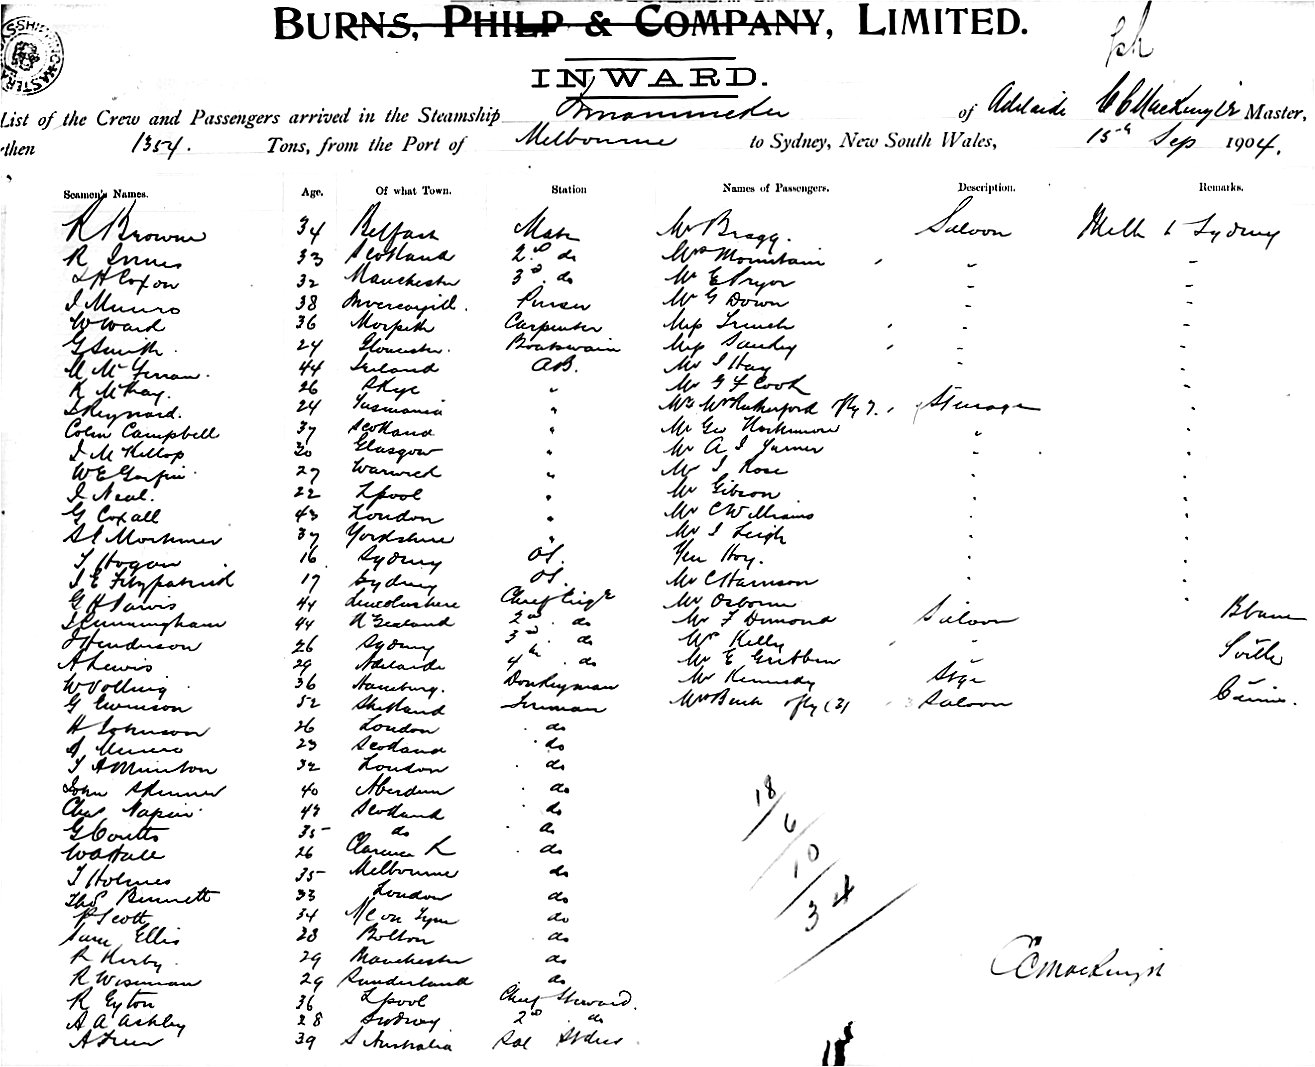 BURNS, PHILP & COMPANY, LIMITED.
INWARD.
List of the Crew and Passengers arrived in the Steamship of Adelaide C C MacKenzie Master,
then 1354. Tons, from the Port of Melbourne to Sydney, New South Wales, 15th Sep 1904.
Seamen's Names. Age. Of what Town. Station Names of Passengers. Description. Remarks.
R Browne 34 Belfast Mate Mr Bragg. Saloon Melb to Sydney
R Innes 33 Scotland 2nd do Mrs Mountain " "
Coxon 32 Manchester 3rd do Mr E Pryor " "
J Munro 38 Invercargill. Purser Mr G Down " "
W Ward 36 Morpeth Carpenter Miss French " "
G Smith 24 Gloucester. Boatswain Miss Sankey " "
44 Ireland AB. Mr J Hay " "
R McKay. 26 Skye " Mr G F Cook " "
Reynard. 24 Tasmania " Rutherford Steerage "
Colin Campbell 37 Scotland " Mr Geo " "
30 Glasgow " Mr A J Turner " "
W E 27 Warwick " Mr J Rose " "
J Neal. 22 Lpool " Mr Gibson " "
G Coxall 43 London " Mr C Williams " "
Mortimer 37 Yorkshire " Mr J Leigh " "
T Hogan 16 Sydney OS. Hoy. " "
J E Fitzpatrick 17 Sydney OS. Mr C Harrison " "
G H Jarvis 44 Lincolnshire Chief Eng'r Mr Osborne "
J Cunningham 44 N Zealand 2nd do Mr F Dimond Saloon Bbane
J Henderson 26 Sydney 3rd do Kelly "
A Lewis 29 Adelaide 4th do Mr E Gribben " T'ville
W Volling 36 Hamburg. Donkeyman Mr Kennedy Stge
G Ewenson 52 Shetland Fireman (3) Saloon Cairns.
H Johnson 26 London do
Munro 23 Scotland do
32 London do
John Skinner 40 Aberdeen do
Chas Napier 43 Scotland do
G Coutts 35 do do
W A Hall 26 Clarence R do
T Holmes 35 Melbourne do
Thos Bennett 33 London do
Scott 34 N C on Tyne do
Sam Ellis 28 Bolton do
R Kirby. 29 Manchester do
R Wiseman 29 Sunderland do
R Eyton 36 Lpool Chief Steward.
A A Ashley 28 Sydney 2nd do
39 S Australia Sal
18
6
10
34
C C MacKenzie